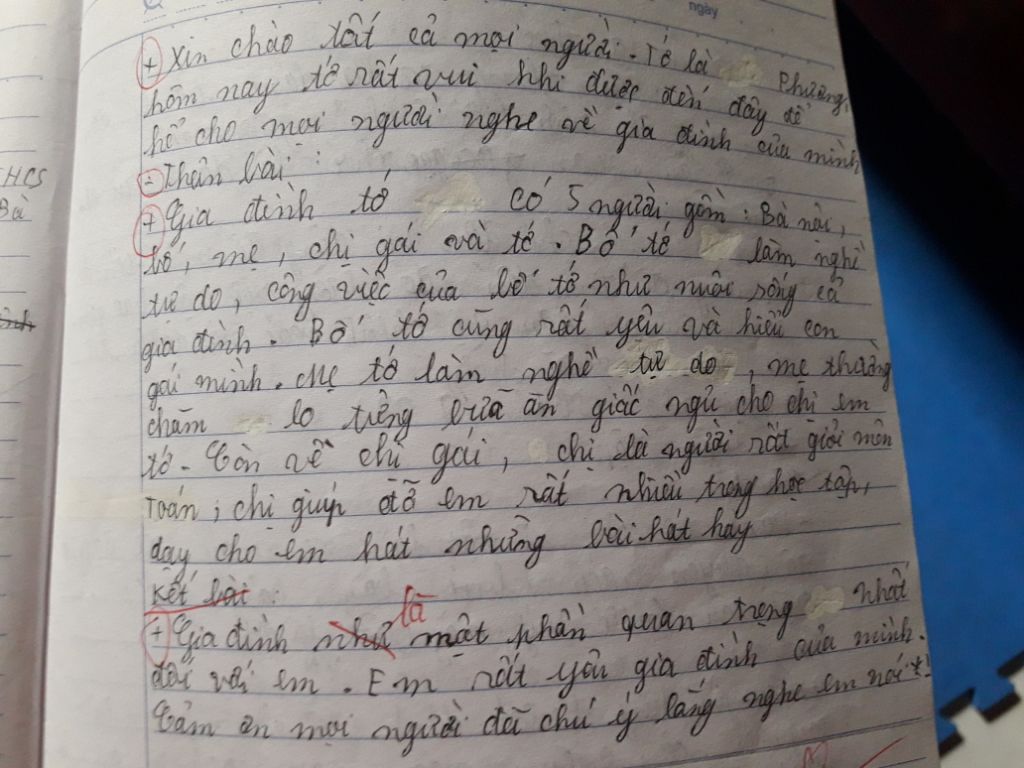 ngày
+ Xin chào tất cả mọi người. Tớ là Phương,
hôm nay tớ rất vui khi được đến đây để
kể cho mọi người nghe về gia đình của mình
- Thân bài:
+ Gia đình tớ có 5 người gồm: Bà nội,
bố, mẹ, chị gái và tớ. Bố tớ làm nghề
tự do, công việc của bố tớ như nuôi sống cả
gia đình. Bố tớ cũng rất yêu và hiểu con
gái mình. Mẹ tớ làm nghề tự do, mẹ thường
chăm lo từng bữa ăn giấc ngủ cho chị em
tớ. Còn về chị gái, chị là người rất giỏi môn
Toán, chị giúp đỡ em rất nhiều trong học tập,
dạy cho em hát những bài hát hay
Kết bài:
+ Gia đình như là một phần quan trọng nhất
đối với em. Em rất yêu gia đình của mình.
Cảm ơn mọi người đã chú ý lắng nghe em nói
HCS
Bà